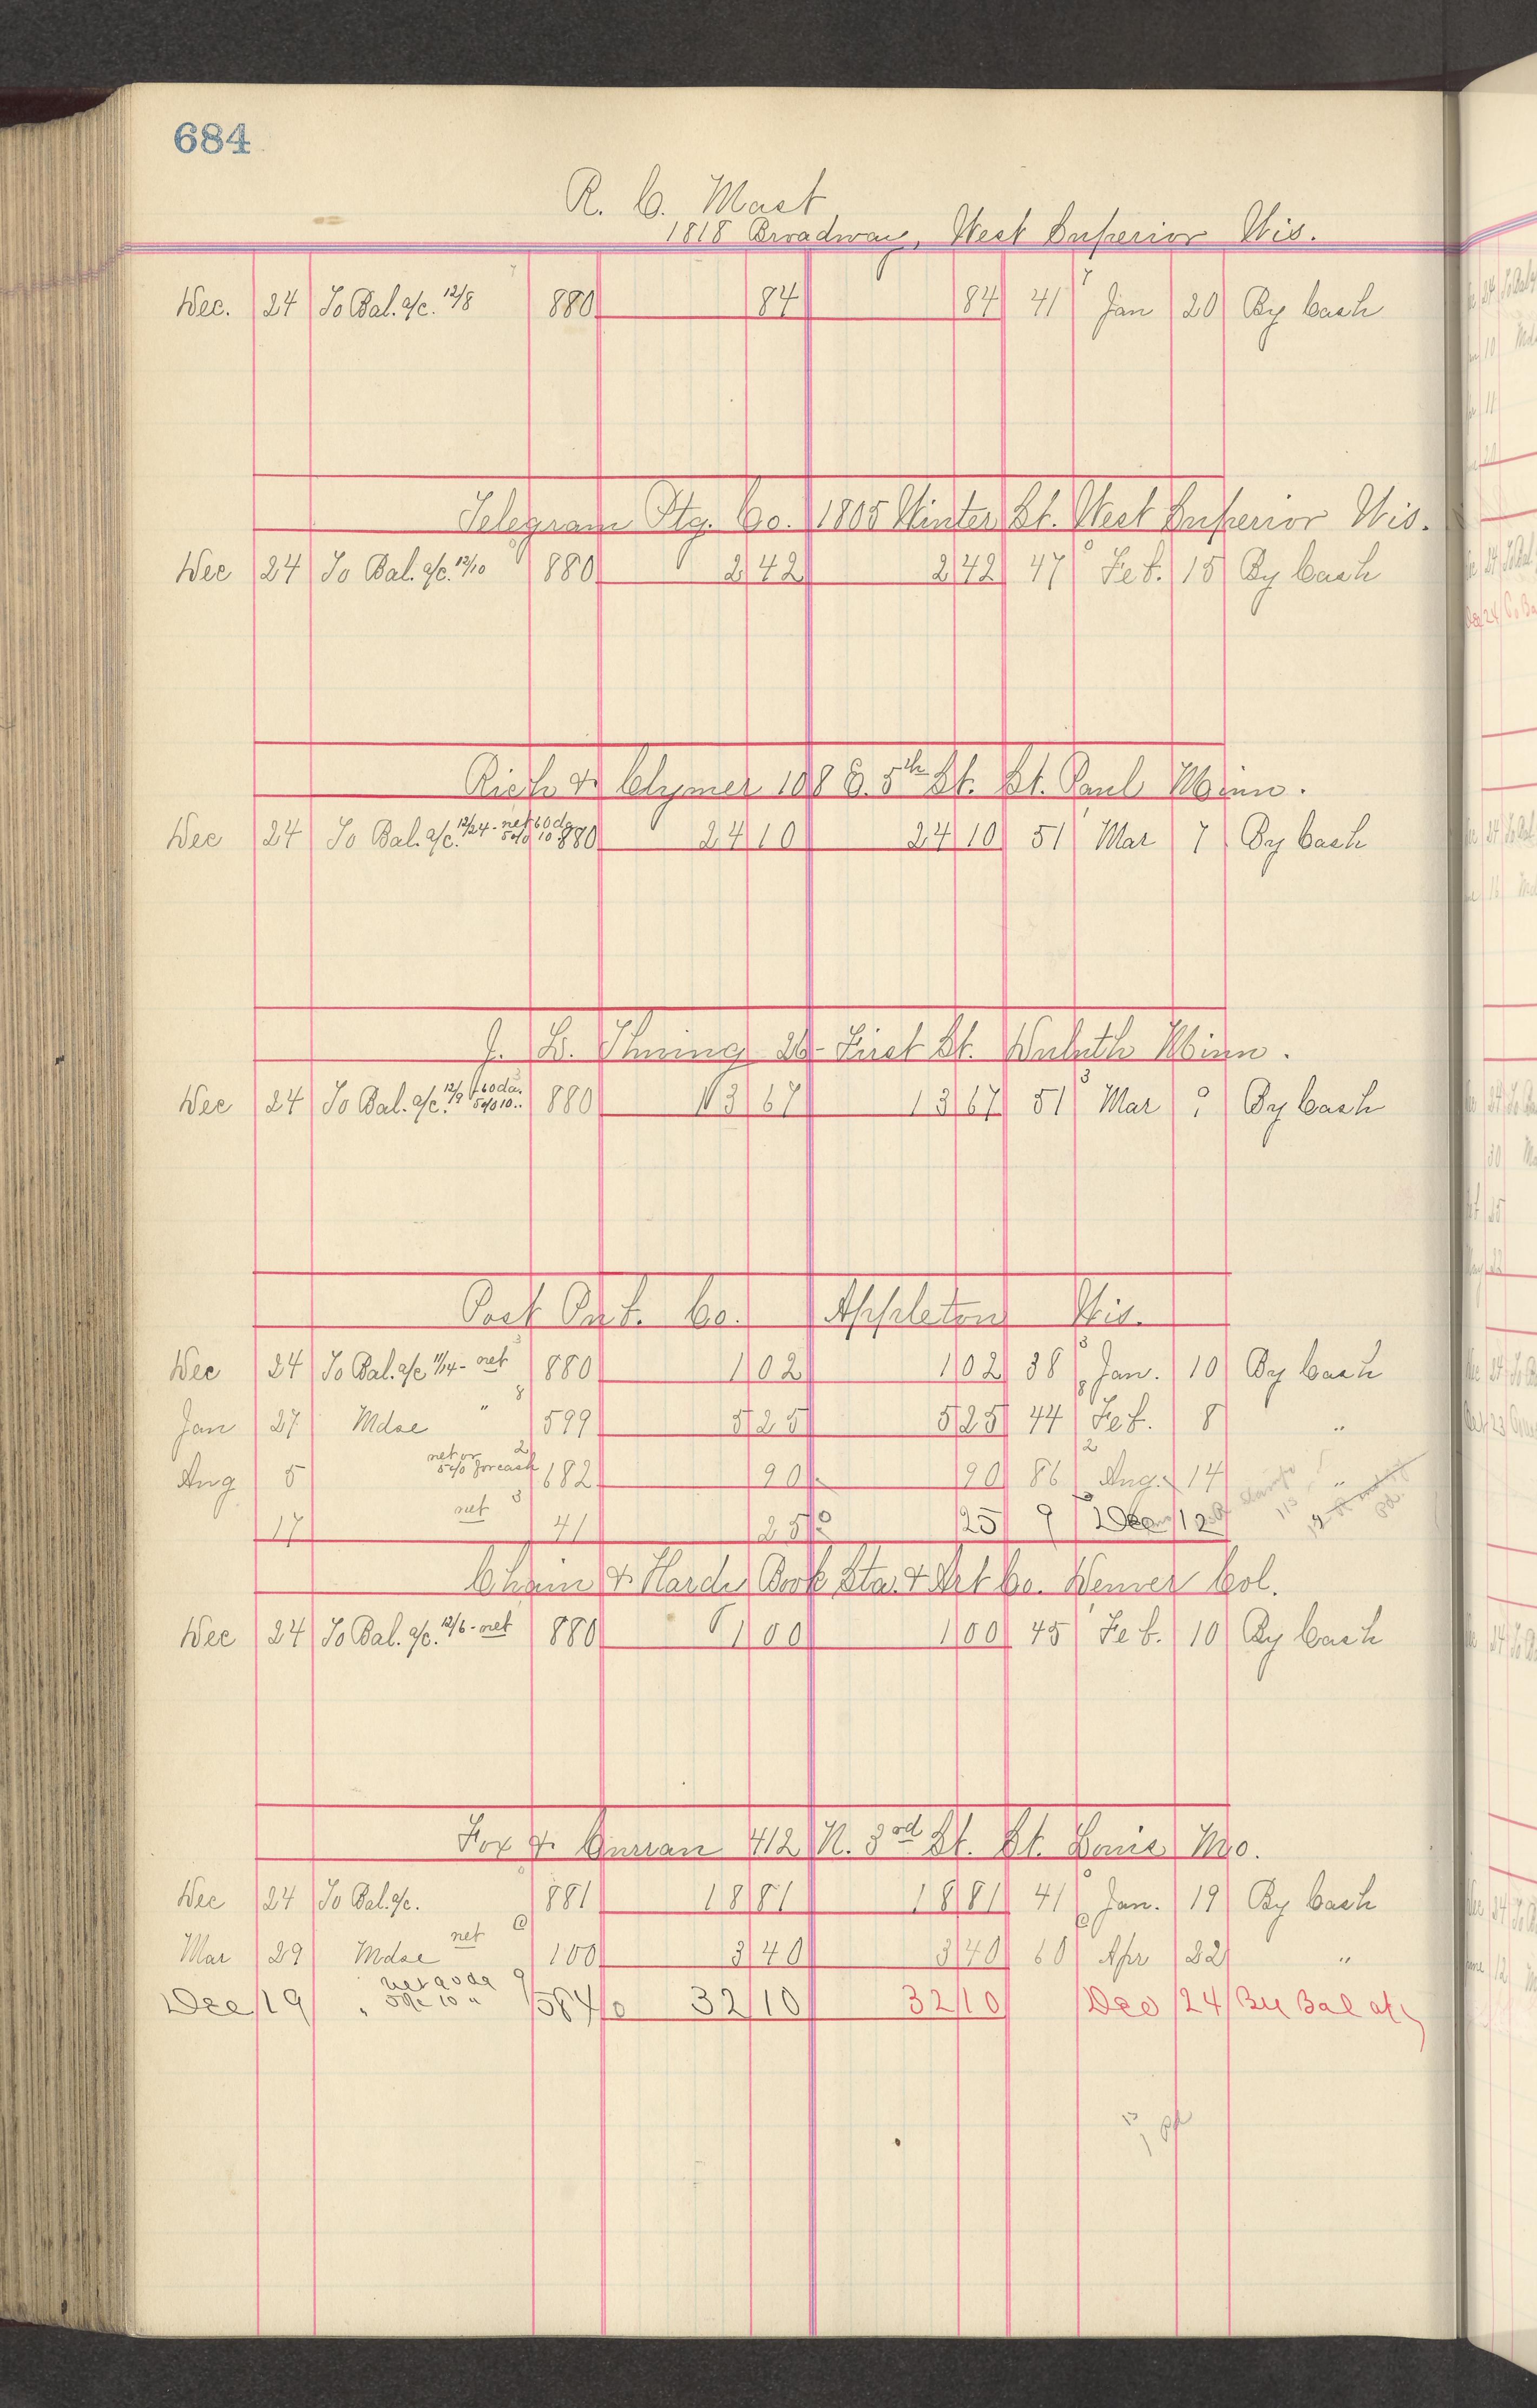 684
R. C. Mast
1818 Broadway, West Superior Wis.
Dec. 24 To Bal. a/c. 12/8 880 84 84 41 Jan 20 By Cash
Telegram Ptg. Co. 1805 Winter St. West Superior Wis.
Dec 24 To Bal. a/c. 12/10 880 2 42 2 42 47 Feb. 15 By Cash
Rich & Clymer 108 E. 5th St. St. Paul Minn.
Dec 24 To Bal. a/c. 12/24 - net 60 da 5% 10 880 24 10 24 10 51 Mar 7 By Cash
St. Duluth Minn.
Dec 24 To Bal. a/c. 12/9 60 da. 5% 10 .. 880 13 67 13 67 51 Mar By Cash
Post Pub. Co. Appleton Wis.
Dec 24 To Bal. a/c 11/14 - net 880 1 02 1 02 38 Jan. 10 By Cash
Jan 27 Mdse " 599 5 25 5 25 44 Feb. 8 "
Aug 5 net or 5% for cash 682 90 90 86 Aug. 14 "
17 net 41 25 25 9 Dec 12
Chain & Hardy Book Sta. & Art Co. Denver Col.
Dec 24 To Bal. a/c. 12/6 - net 880 1 00 1 00 45 Feb. 10 By Cash
Fox & Curran 412 N. 3rd St. St. Louis Mo.
Dec 24 To Bal. a/c. 881 18 81 18 81 41 Jan. 19 By Cash
Mar 29 Mdse net 100 3 40 3 40 60 Apr 22 "
Dec 19 " 5% 10 " 584 32 10 32 10 Dec 24 By Bal a/c